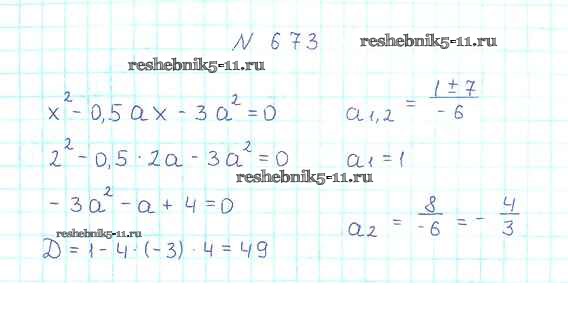 N 673
reshebnik5-11.ru
reshebnik5-11.ru
x² - 0,5ax - 3a² = 0
2² - 0,5 · 2a - 3a² = 0
reshebnik5-11.ru
- 3a² - a + 4 = 0
reshebnik5-11.ru
D = 1 - 4 · (-3) · 4 = 49
a₁,₂ = (1 ± 7) / (-6)
a₁ = 1
a₂ = 8 / (-6) = - 4/3